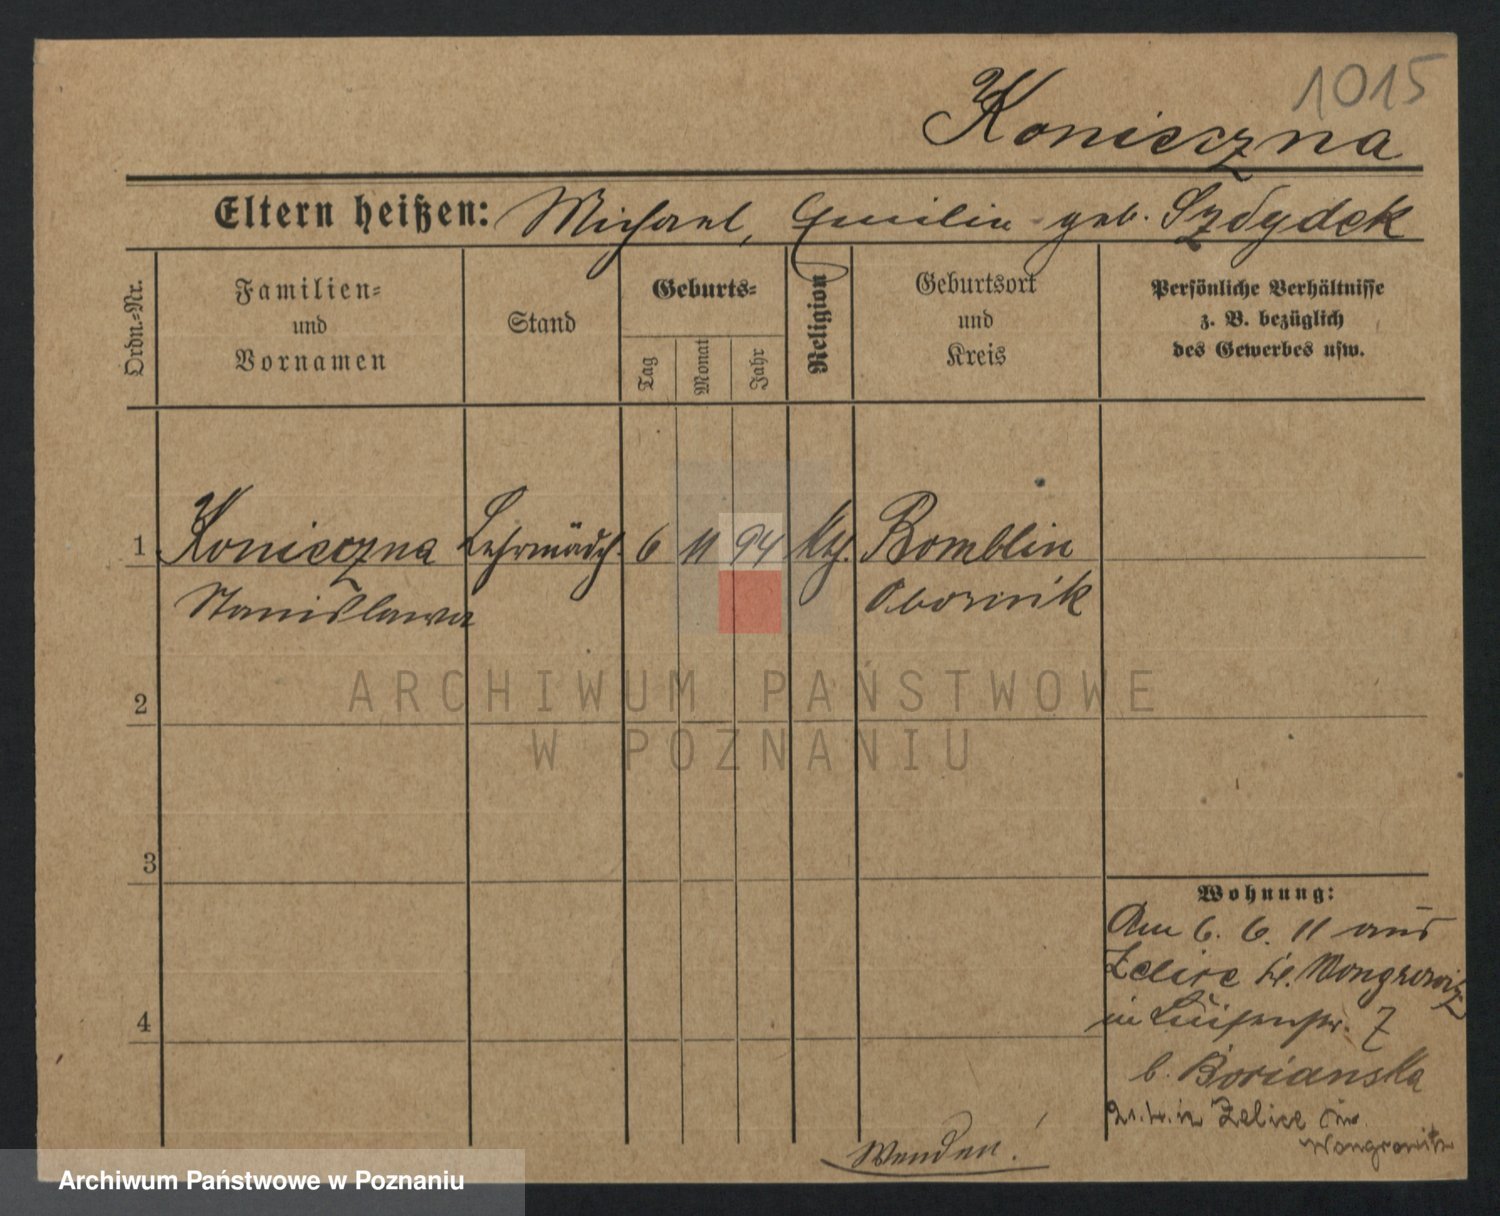 1015
Konieczna
Eltern heißen: Michael, Emilie geb. Szdydek
Ordn.-Nr.
Familien-
und
Vornamen
Stand
Geburts-
Tag
Monat
Jahr
Religion
Geburtsort
und
Kreis
Persönliche Verhältnisse
z. B. bezüglich
des Gewerbes usw.
1 Konieczna Lehrmädch. 6 11 94 kth. Bomblin
Stanislawa Obornik
2
3
4
Wohnung:
Am 6. 6. 11 aus
Zelice Kr. Wongrowitz
in Luisenstr. 7
b. Borianska
Zelice Kr.
Wongrowitz
Wenden!
ARCHIWUM PAŃSTWOWE
W POZNANIU
Archiwum Państwowe w Poznaniu